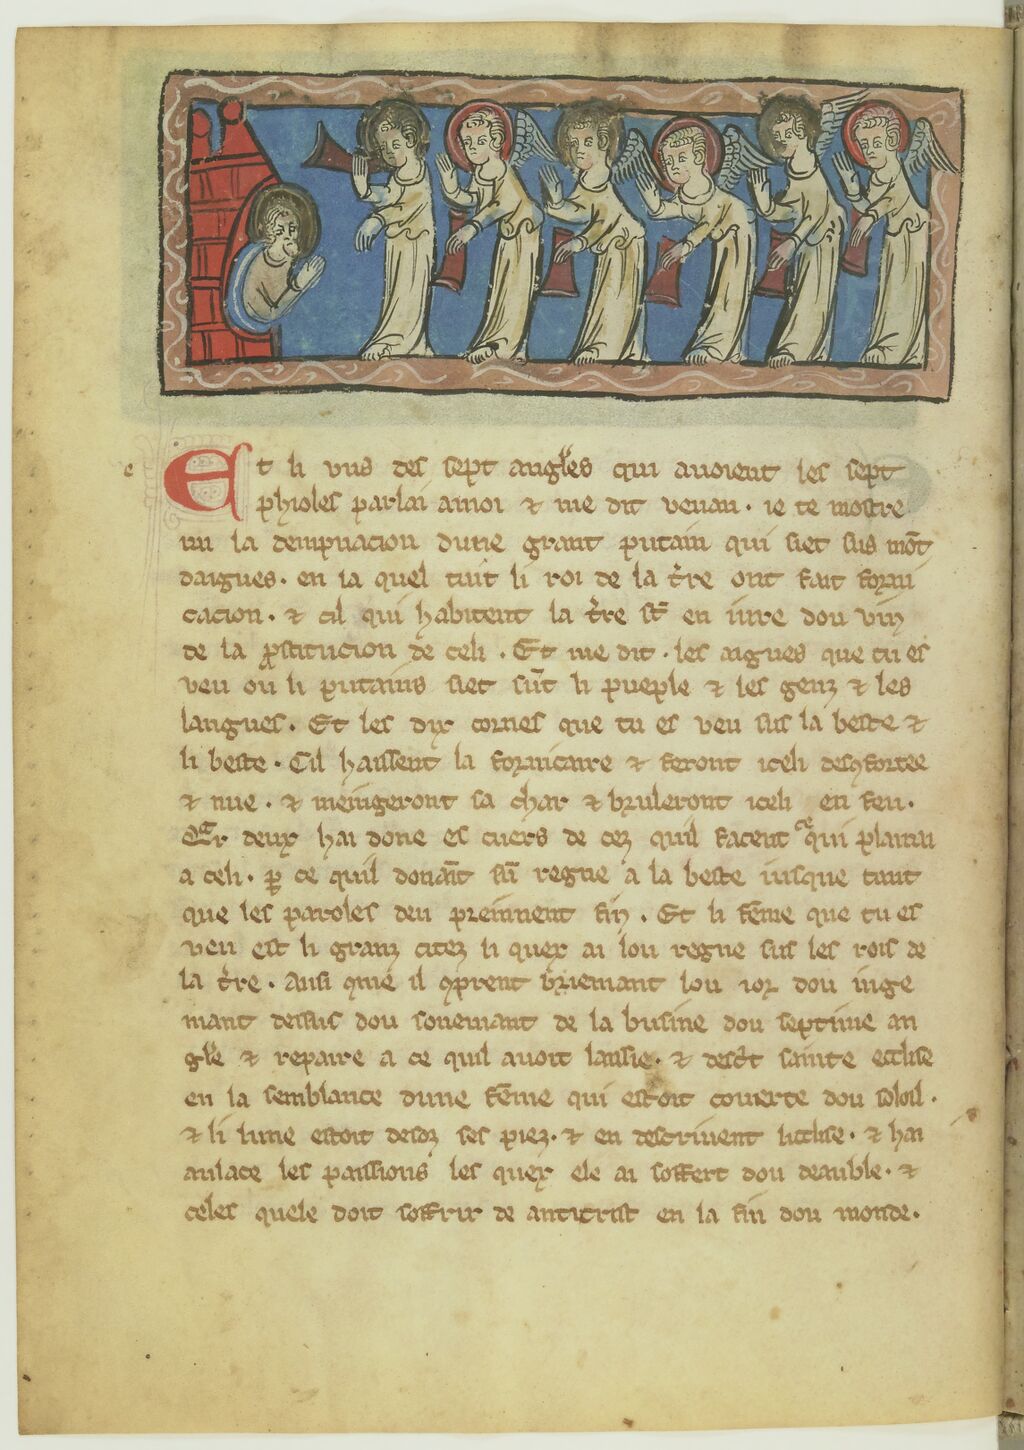 e
Et li vns des sept angles qui auoient les sept
phioles parlai amoi & me dit venau · ie te mostre
dune grant putain qui siet sus mot
daigues · en la quel tuit li roi de la tre ont fait forni
cacion · & cil qui habitent la tre st en iure dou vin
de la prstitucion de celi · Et me dit · les aigues que tu es
veu ou li putains siet sut li pueple & les genz & les
langues · Et les dix cornes que tu es veu sus la beste &
li beste · Cil haissent la fornicaire & feront iceli
& nue · & mengeront sa char & bruleront iceli en feu ·
deux hai done es cuers de cez quil facent ce qui
a celi · p ce quil donat regne a la beste iusque tant
que les paroles deu preinnent fin · Et li feme que tu es
veu est li granz citez li quex ai lou regne sus les rois de
la tre · Ausi il qprent briemant lou ior dou iuge
mant dessus dou soneimant de la busine dou septime an
gle & repaire a ce quil auoit laissie · & sainte eclise
en la semblance dune feme qui estoit couerte dou soloil ·
& li lune estoit desoz ses piez · & en descriuent · & hai
les passions les quex ele ai soffert dou deauble · &
celes quele doit soffrir de anticrist en la fin dou monde ·